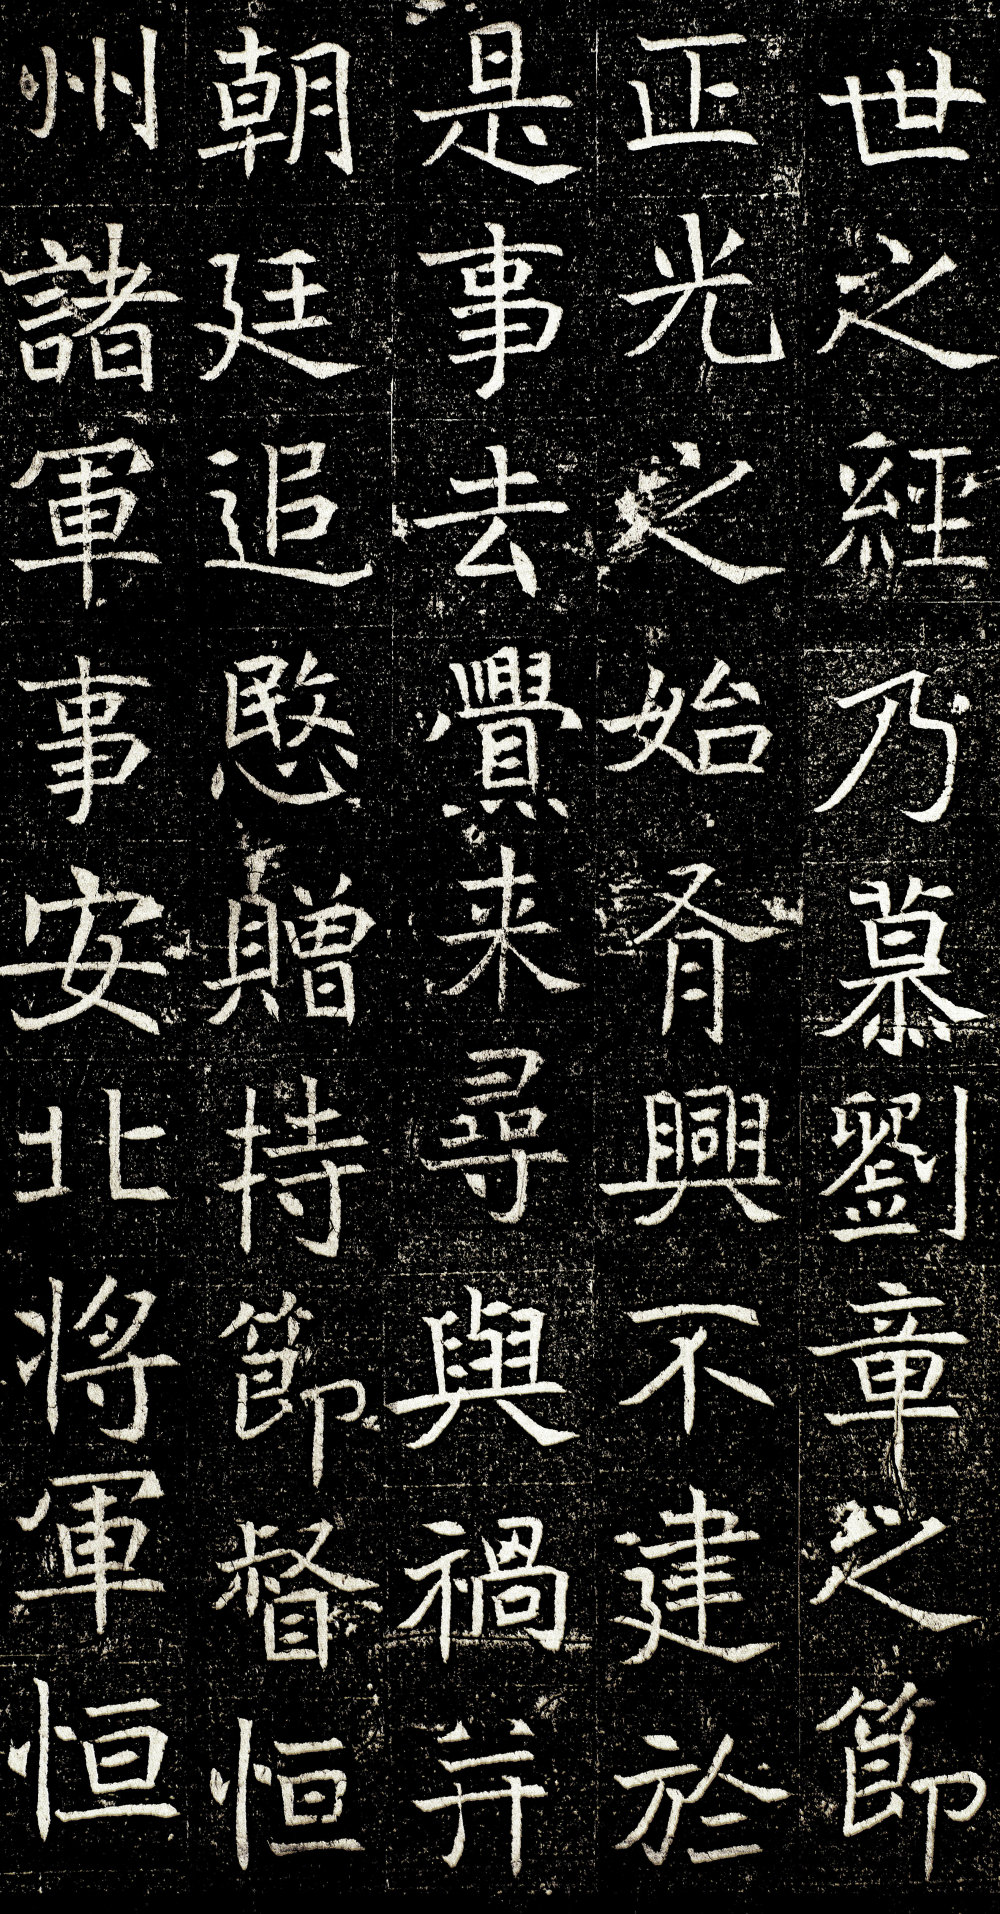 世之經乃慕劉章之節
正光之始胥興不建於
是事去釁来尋與禍并
朝廷追愍贈持節督恒
州諸軍事安北將軍恒